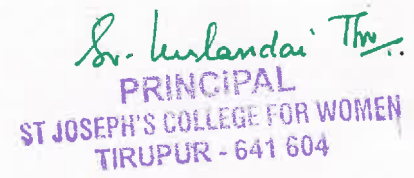 Sr. Kulandai Th
PRINCIPAL
ST JOSEPH'S COLLEGE FOR WOMEN
TIRUPUR - 641 604